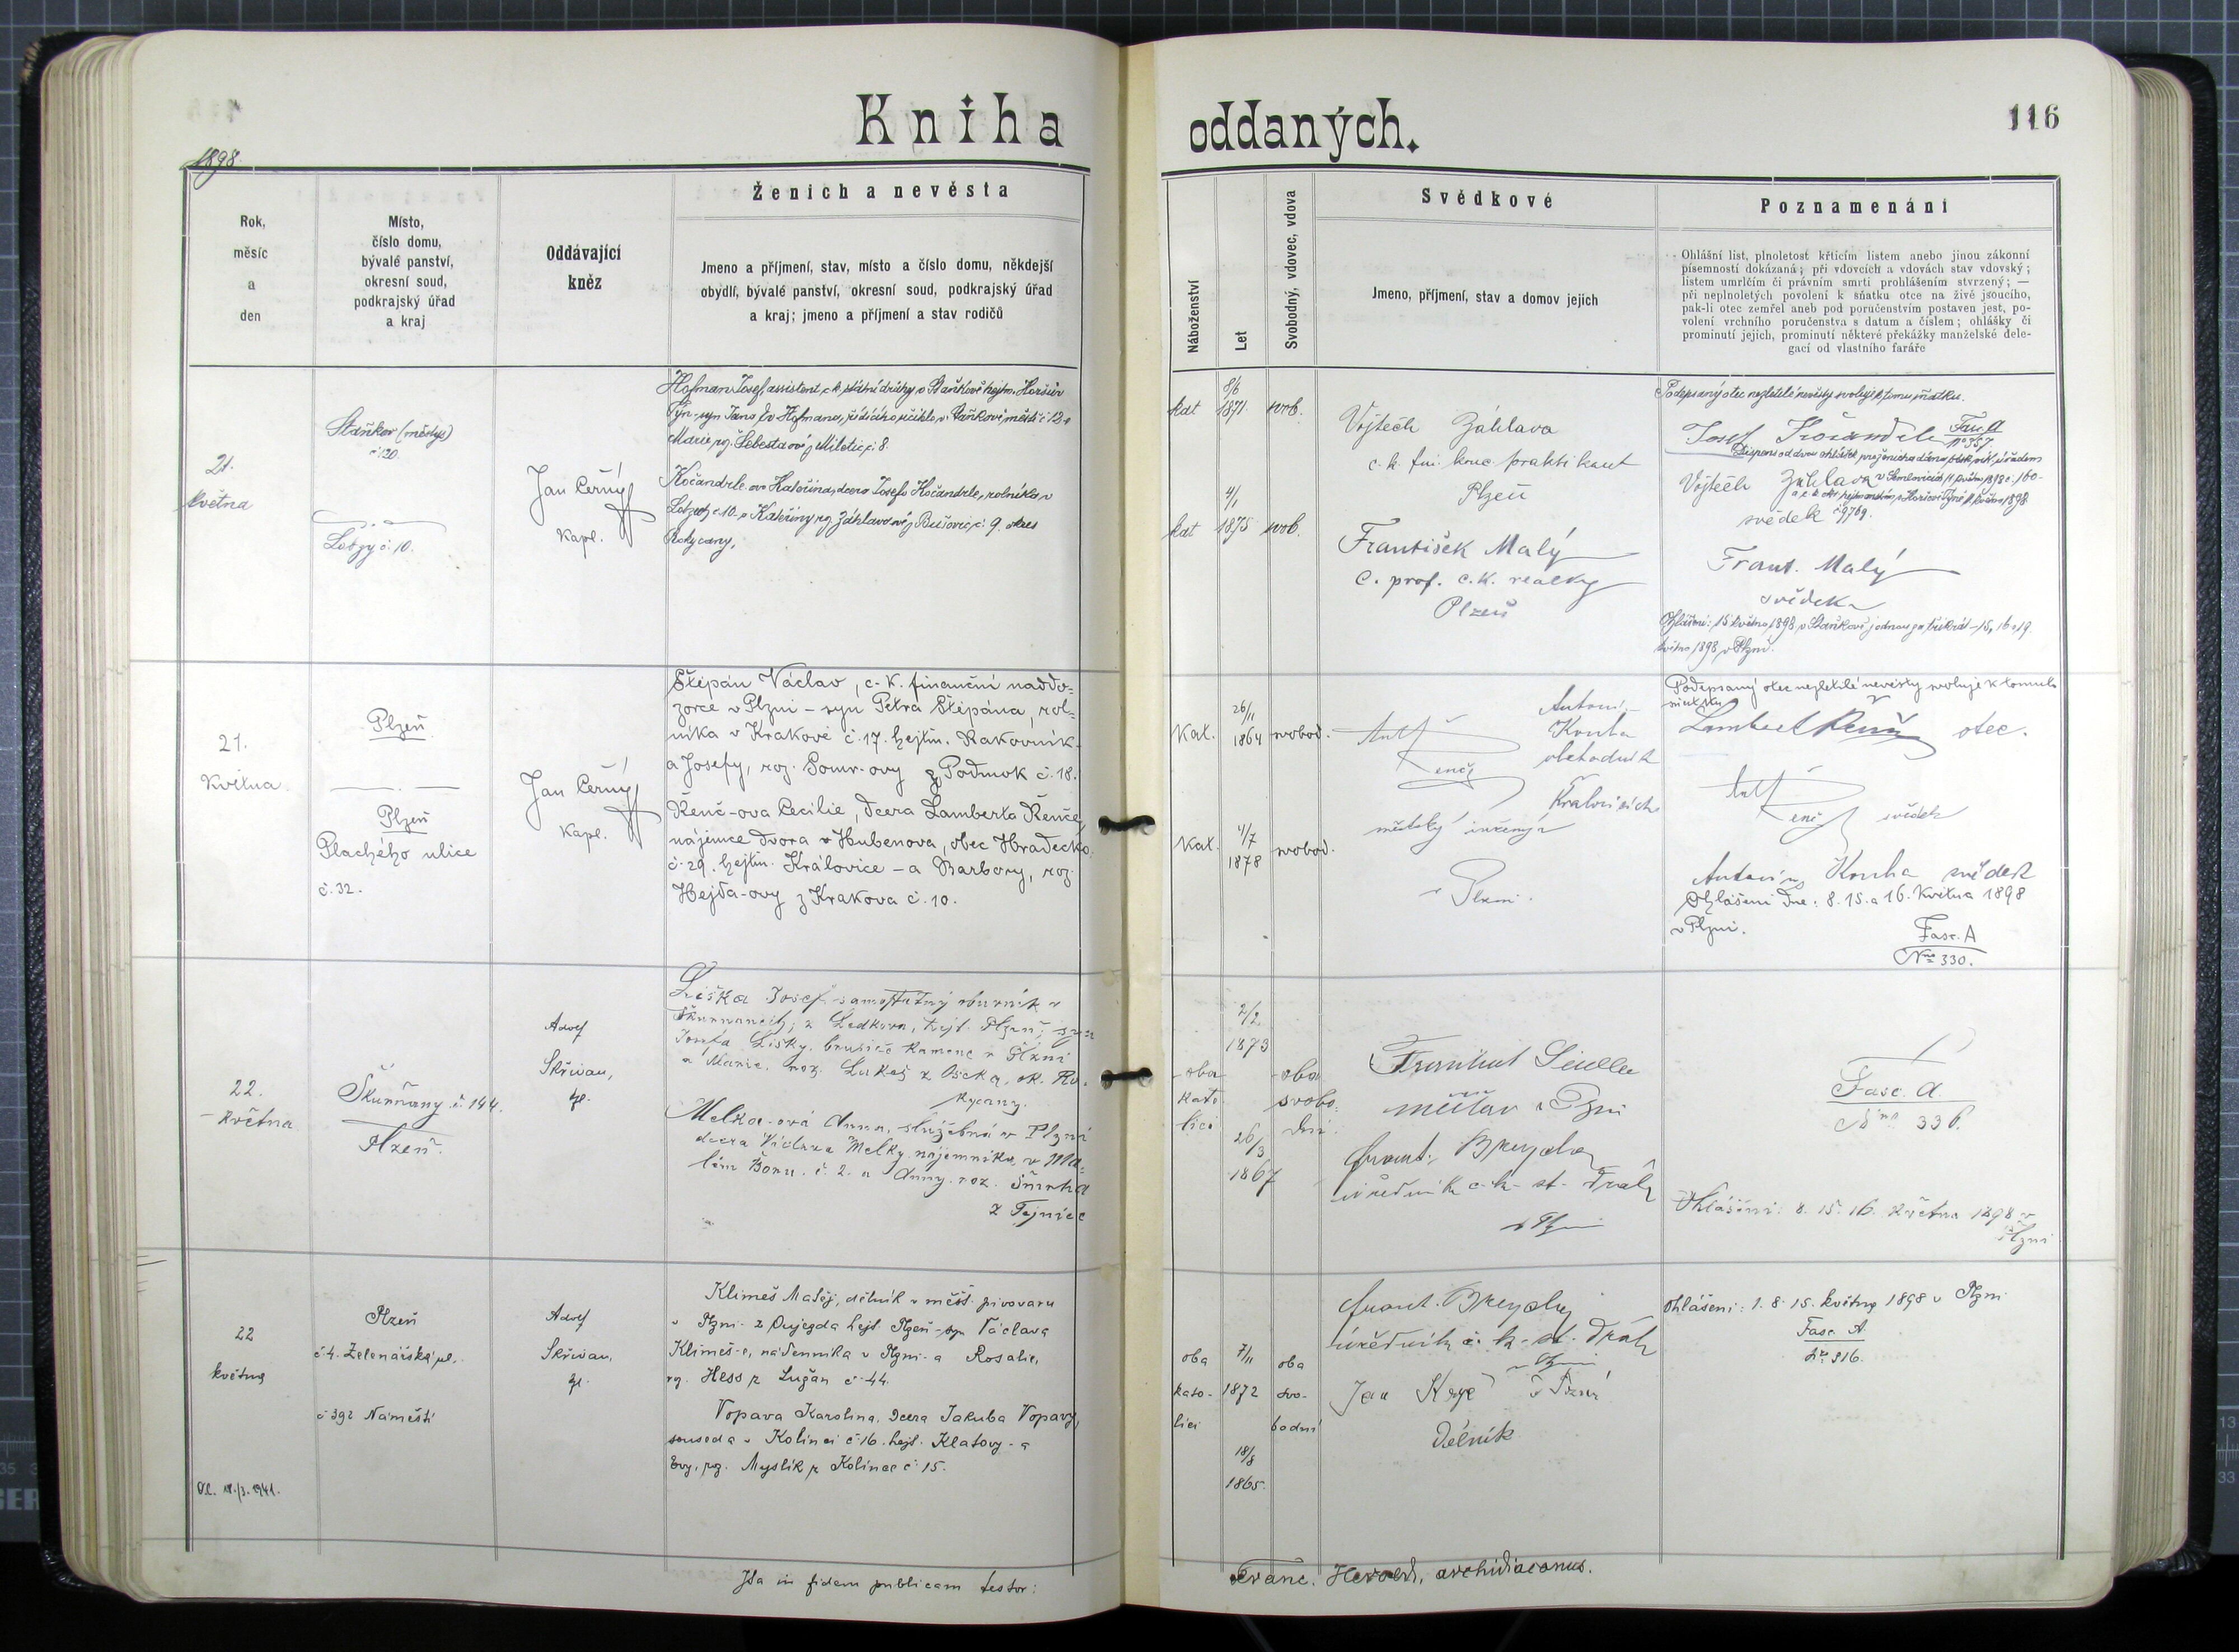 Kniha oddaných.
116
1898.
Rok,
měsíc
a
den
Místo,
číslo domu,
bývalé panství,
okresní soud,
podkrajský úřad
a kraj
Oddávající
kněz
Ženich a nevěsta
Jmeno a příjmení, stav, místo a číslo domu, někdejší
obydlí, bývalé panství, okresní soud, podkrajský úřad
a kraj; jmeno a příjmení a stav rodičů
Náboženství
Let
Svobodný, vdovec, vdova
Svědkové
Jmeno, příjmení, stav a domov jejich
Poznamenání
Ohlášní list, plnoletost křticím listem anebo jinou zákonní
písemností dokázaná; při vdovcích a vdovách stav vdovský;
listem umrlčím či právním smrti prohlášením stvrzený; —
při neplnoletých povolení k sňatku otce na živě jsoucího,
pak-li otec zemřel aneb pod poručenstvím postaven jest, po-
volení vrchního poručenstva s datum a číslem; ohlášky či
prominutí jejich, prominutí některé překážky manželské dele-
gací od vlastního faráře
21.
května
Staňkov (městys)
č 120
Lobzy č. 10.
Jan Černý
Kapl.
Hofman Josef, assistent c. k. státní dráhy v Staňkově hejtm. Horšův
Týn - syn Jana
Marie, roz. Šebestaový z Miletic č. 8.
Kočandrle-ova Kateřina, dcera Josefa Kočandrle, rolníka v
Lobzech č. 10. a Kateřiny roz. Záhlavaový z Bušovic č. 9. okres
Rokycany,
kat
8/8
1871.
svob.
kat
4/1
1875
svob.
Vojtěch Záhlava
c. k. fin. konc. praktikant
Plzeň
František Malý
c. prof. c. k. realky
Plzeň
Podepsaný otec nezletilé nevěsty svoluje k tomu sňatku.
Josef Kočandrle
Fasc A
No 357
Vojtěch Záhlava
svědek
č 9769.
Frant. Malý
svědek
Ohlášení: 15 května 1898 v Staňkově jednou za třikrát - 15, 16 a 19.
května 1898 v Plzni.
21.
Května
Plzeň
Plzeň
Plachého ulice
č. 32.
Jan Černý
Kapl.
Štěpán Václav, c. k. finanční naddo=
zorce v Plzni - syn Petra Štěpána, rol=
níka v Krakově č. 17. hejtm. Rakovník
a Josefy, roz. Pomr-ovy z Podmok č. 18.
Řenč-ova Cecilie, dcera Lamberta Řenče,
nájemce dvora v Hubenova, obec Hradecko
č. 29. hejtm. Královice - a Barbory, roz.
Hejda-ovy z Krakova č. 10.
Kat.
26/11
1864
svobod.
Kat.
4/7
1878
svobod.
Ant Řenč
městský inženýr
v Plzni.
Antonín
Kouba
obchodník
Kralovicích
Podepsaný otec nezletilé nevěsty svoluje k tomuto
sňatku
Lambert Řenč otec.
Ant Řenč svědek
Antonín Kouba svědek
Ohlášeni dne: 8. 15. a 16. Května 1898
v Plzni.
Fasc. A
Nro 330.
22.
května
Škurňany č. 144.
Plzeň.
Adolf
Skřivan,
kpl.
Liška Josef, samostatný obuvník v
Škurňanech, z Ledkova, hejt. Plzeň, syn
Josefa Lišky, brusiče kamene v Plzni
a Marie, roz. Lukeš z Oseka, ok. Ro-
kycany.
Melka-ová Anna, služebná v Plzni
dcera Václava Melky nájemníka v Ma-
lém Boru č. 2. a Anny roz. Šmrha
z Tejnice
oba
kato-
lici
2/2.
1873
26/3
1867
oba
svobo=
dní.
František
měšťan v Plzni
Frant. Brejcha
úředník c. k. st. dráh
v Plzni
Fasc. A.
Nro 336.
Ohlášeni: 8. 15. 16. května 1898 v
Plzni
22
května
Vl. 18./3. 1941.
Plzeň
č 4. Zelenářská ul.
č 392 Náměstí
Adolf
Skřivan,
kpl.
Klimeš Matěj, dělník v měšť. pivovaru
v Plzni - z Oujezda hejt. Plzeň - syn Václava
Klimeš-e, nádenníka v Plzni - a Rosalie,
roz. Hess z Lužan č. 44.
Vopava Karolina, dcera Jakuba Vopavy,
souseda v Kolinci č 16. hejt. Klatovy - a
Evy, roz. Myslík z Kolince č. 15.
oba
kato-
lici
7/11
1872
18/8
1865.
oba
svo-
bodní
Frant. Brejcha
úředník c. k. st. dráh
v Plzni
Jan
v Plzni
Dělník
Ohlášeni: 1. 8. 15. května 1898 v Plzni
Fasc. A.
No 316.
Ita in fidem publicam testor:
Franc. Herold, archidiaconus.